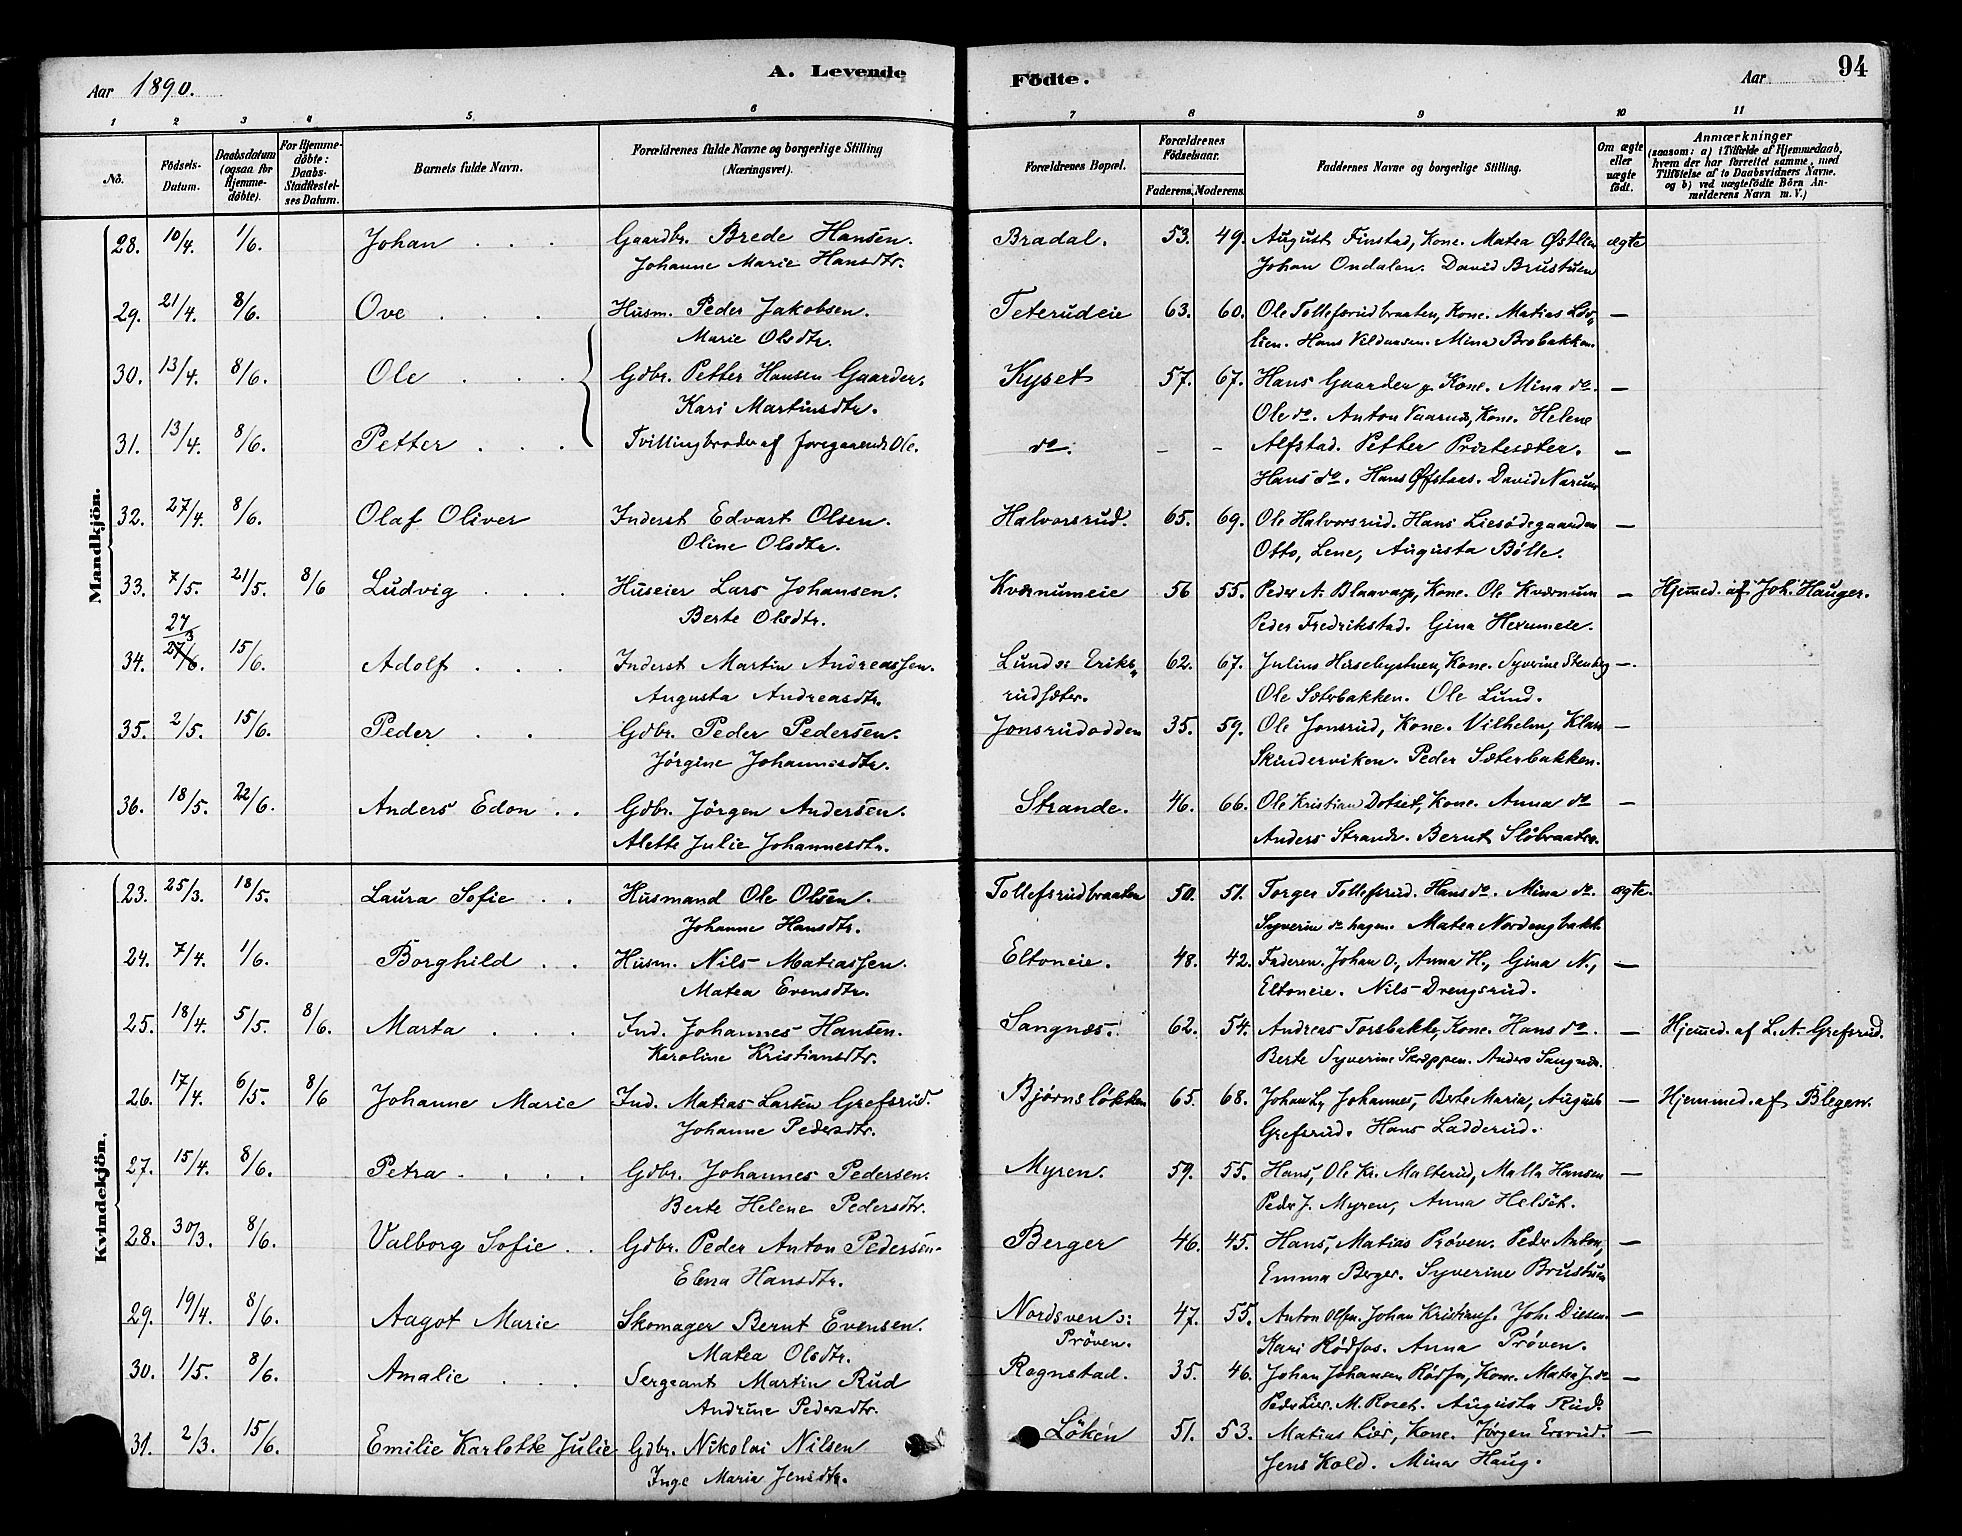 Aar 1890.
A. Levende
Födte.
Aar
94
1 2 3 4 5. 6 7 8 9 10 11
No.
Födsels-Datum.
Daabsdatum (ogsaa for Hjemme-døbte).
For Hjemme-døbte: Daabs-Stadfæstel-ses Datum.
Barnets fulde Navn.
Forældrenes fulde Navne og borgerlige Stilling (Næringsvei).
Forældrenes Bopæl.
Forældrenes Födselsaar.
Faderens. Moderens.
Faddernes Navne og borgerlige Stilling.
Om ægte eller uægte født.
Anmærkninger
(saasom: a) i Tilfælde af Hjemmedaab, hvem der har forrettet samme, med Tilføielse af to Daabsvidners Navne, og b) ved uægtefödte Börn Anmelderens Navn m. V.)
Mandkjön.
28. 10/4. 1/6. Johan . . . Gaardbr. Brede Hansen. Bradal. 53. 49. August Finstad, Kone. Matea Østlien ægte
Johanne Marie Hansdtr. Johan Ondalen. David Brustuen
29. 21/4. 8/6. Ove . . . Husm. Peder Jakobsen. Teterudeie 63. 60. Ole Tollefsrudbraaten, Kone. Matias —
Marie Olsdtr. lien. Hans Mina Brobakken.
30. 13/4. 8/6. Ole . . . Gdbr. Petter Hansen Gaarder. Kyset 57. 67. Hans Gaarder g. Kone. Mina do. —
Kari Martinsdtr. Ole do. Anton Vaarud, Kone. Helene
31. 13/4. 8/6. Petter . . . Tvillingbroder af foregaaende Ole. do. - - Alfstad. Petter Præstesæter. —
Hans do. Hans Øfstaas. David Narum
32. 27/4. 8/6. Olaf Oliver Inderst Edvart Olsen. Halvorsrud. 65. 69. Ole Halvorsrud. Hans Liesødegaarden —
Oline Olsdtr. Otto, Lene, Augusta Bølle.
33. 7/5. 21/5. 8/6 Ludvig . . . Huseier Lars Johansen. Kværnumeie 56 55. Peder A. Blaavarp, Kone. Ole Kværnum — Hjemmed. af Joh. Hauger.
Berte Olsdtr. Peder Fredrikstad. Gina Hexumeie.
27/3
34. 27/6. 15/6. Adolf . . . Inderst Martin Andreassen. Lund s: Eriks- 62. 67. Julius Kone. Syverine Stenberg —.
Augusta Andreasdtr. rudsæter. Ole Sæterbakken. Ole Lund.
35. 2/5. 15/6. Peder . . Gdbr. Peder Pedersen. Jonsrudodden 35. 59. Ole Jonsrud, Kone. Vilhelm, Klara —
Jørgine Johannesdtr. Skinderviken. Peder Sæterbakken.
36. 18/5. 22/6. Anders Edon . . Gdbr. Jörgen Andersen. Strande. 46. 66. Ole Kristian Dotset, Kone. Anna do —
Alette Julie Johannesdtr. Anders Strande. Bernt Slöbraaten.
Kvindekjön.
23. 25/3. 18/5. Laura Sofie . . Husmand Ole Olsen. Tollefsrudbraaten 50. 51. Torger Tollefsrud. Hans do. Mina do. ægte.
Johanne Hansdtr. Syverin do hagen. Matea Nordengbakk.
24. 7/4. 1/6. Borghild . . Husm. Nils Matiassen. Eltoneie. 48. 42. Faderen. Johan O., Anna H., Gina N., —
Matea Evensdtr. Eltoneie. Nils Drengsrud.
25. 18/4. 5/5. 8/6. Marta . . . Ind. Johannes Hansen. Sangnæs. 62. 54. Andreas Torsbakke, Kone. Hans do. — Hjemmed. af L. A. Grefsrud.
Karoline Kristiansdtr. Berte Syverine Skræppen. Anders Sangnæs.
26. 17/4. 6/5. 8/6 Johanne Marie Ind. Matias Larsen Grefsrud. Bjørnsløkken 65. 68. Johan L, Johannes, Berte Maria, August — Hjemmed. af Blegen.
Johanne Pedersdtr. Grefsrud. Hans Ladderud.
27. 15/4. 8/6. Petra . . . . Gdbr. Johannes Pedersen. Myren. 59. 55. Hans, Ole Kr. Malterud, Malla Hansen —
Berte Helene Pedersdtr. Peder J. Myren, Anna Helset.
28. 30/3. 8/6. Valborg Sofie . . Gdbr. Peder Anton Pedersen. Berger 46. 45. Hans, Matias Prøven. Peder Anton, —
Elena Hansdtr. Emma Berger. Syverine Brustuen
29. 19/4. 8/6. Aagot Marie Skomager Bernt Evensen. Nordsven s: 47. 55. Anton Olsen. Johan Kristians. Joh. Diesen. —
Matea Olsdtr. Prøven. Kari Rødfos. Anna Prøven.
30. 1/5. 8/6. Amalie . . . Sergeant Martin Rud Rognstad. 35. 46. Johan Johansen Rødfos, Kone. Matea J. do —
Andrine Pedersdtr. Peder Lier. M. Roset. Augusta Rud.
31. 2/3. 15/6. Emilie Karlotte Julie Gdbr. Nikolai Nilsen Löken 51. 53. Matias Lier, Kone. Jørgen Ersrud. —
Inge Maria Jensdtr. Jens Kold. Mina Haug.